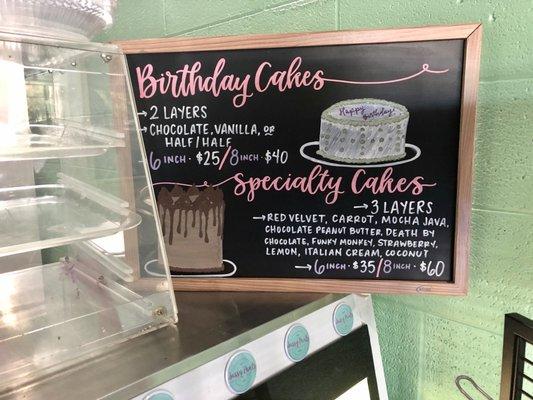 Birthday Cakes
→ 2 LAYERS
→ CHOCOLATE, VANILLA, OR
HALF/HALF
6 INCH · $25/8 INCH · $40
Happy
Birthday!
Specialty Cakes
→ 3 LAYERS
→ RED VELVET, CARROT, MOCHA JAVA,
CHOCOLATE PEANUT BUTTER, DEATH BY
CHOCOLATE, FUNKY MONKEY, STRAWBERRY,
LEMON, ITALIAN CREAM, COCONUT
→ 6 INCH · $35/8 INCH · $60